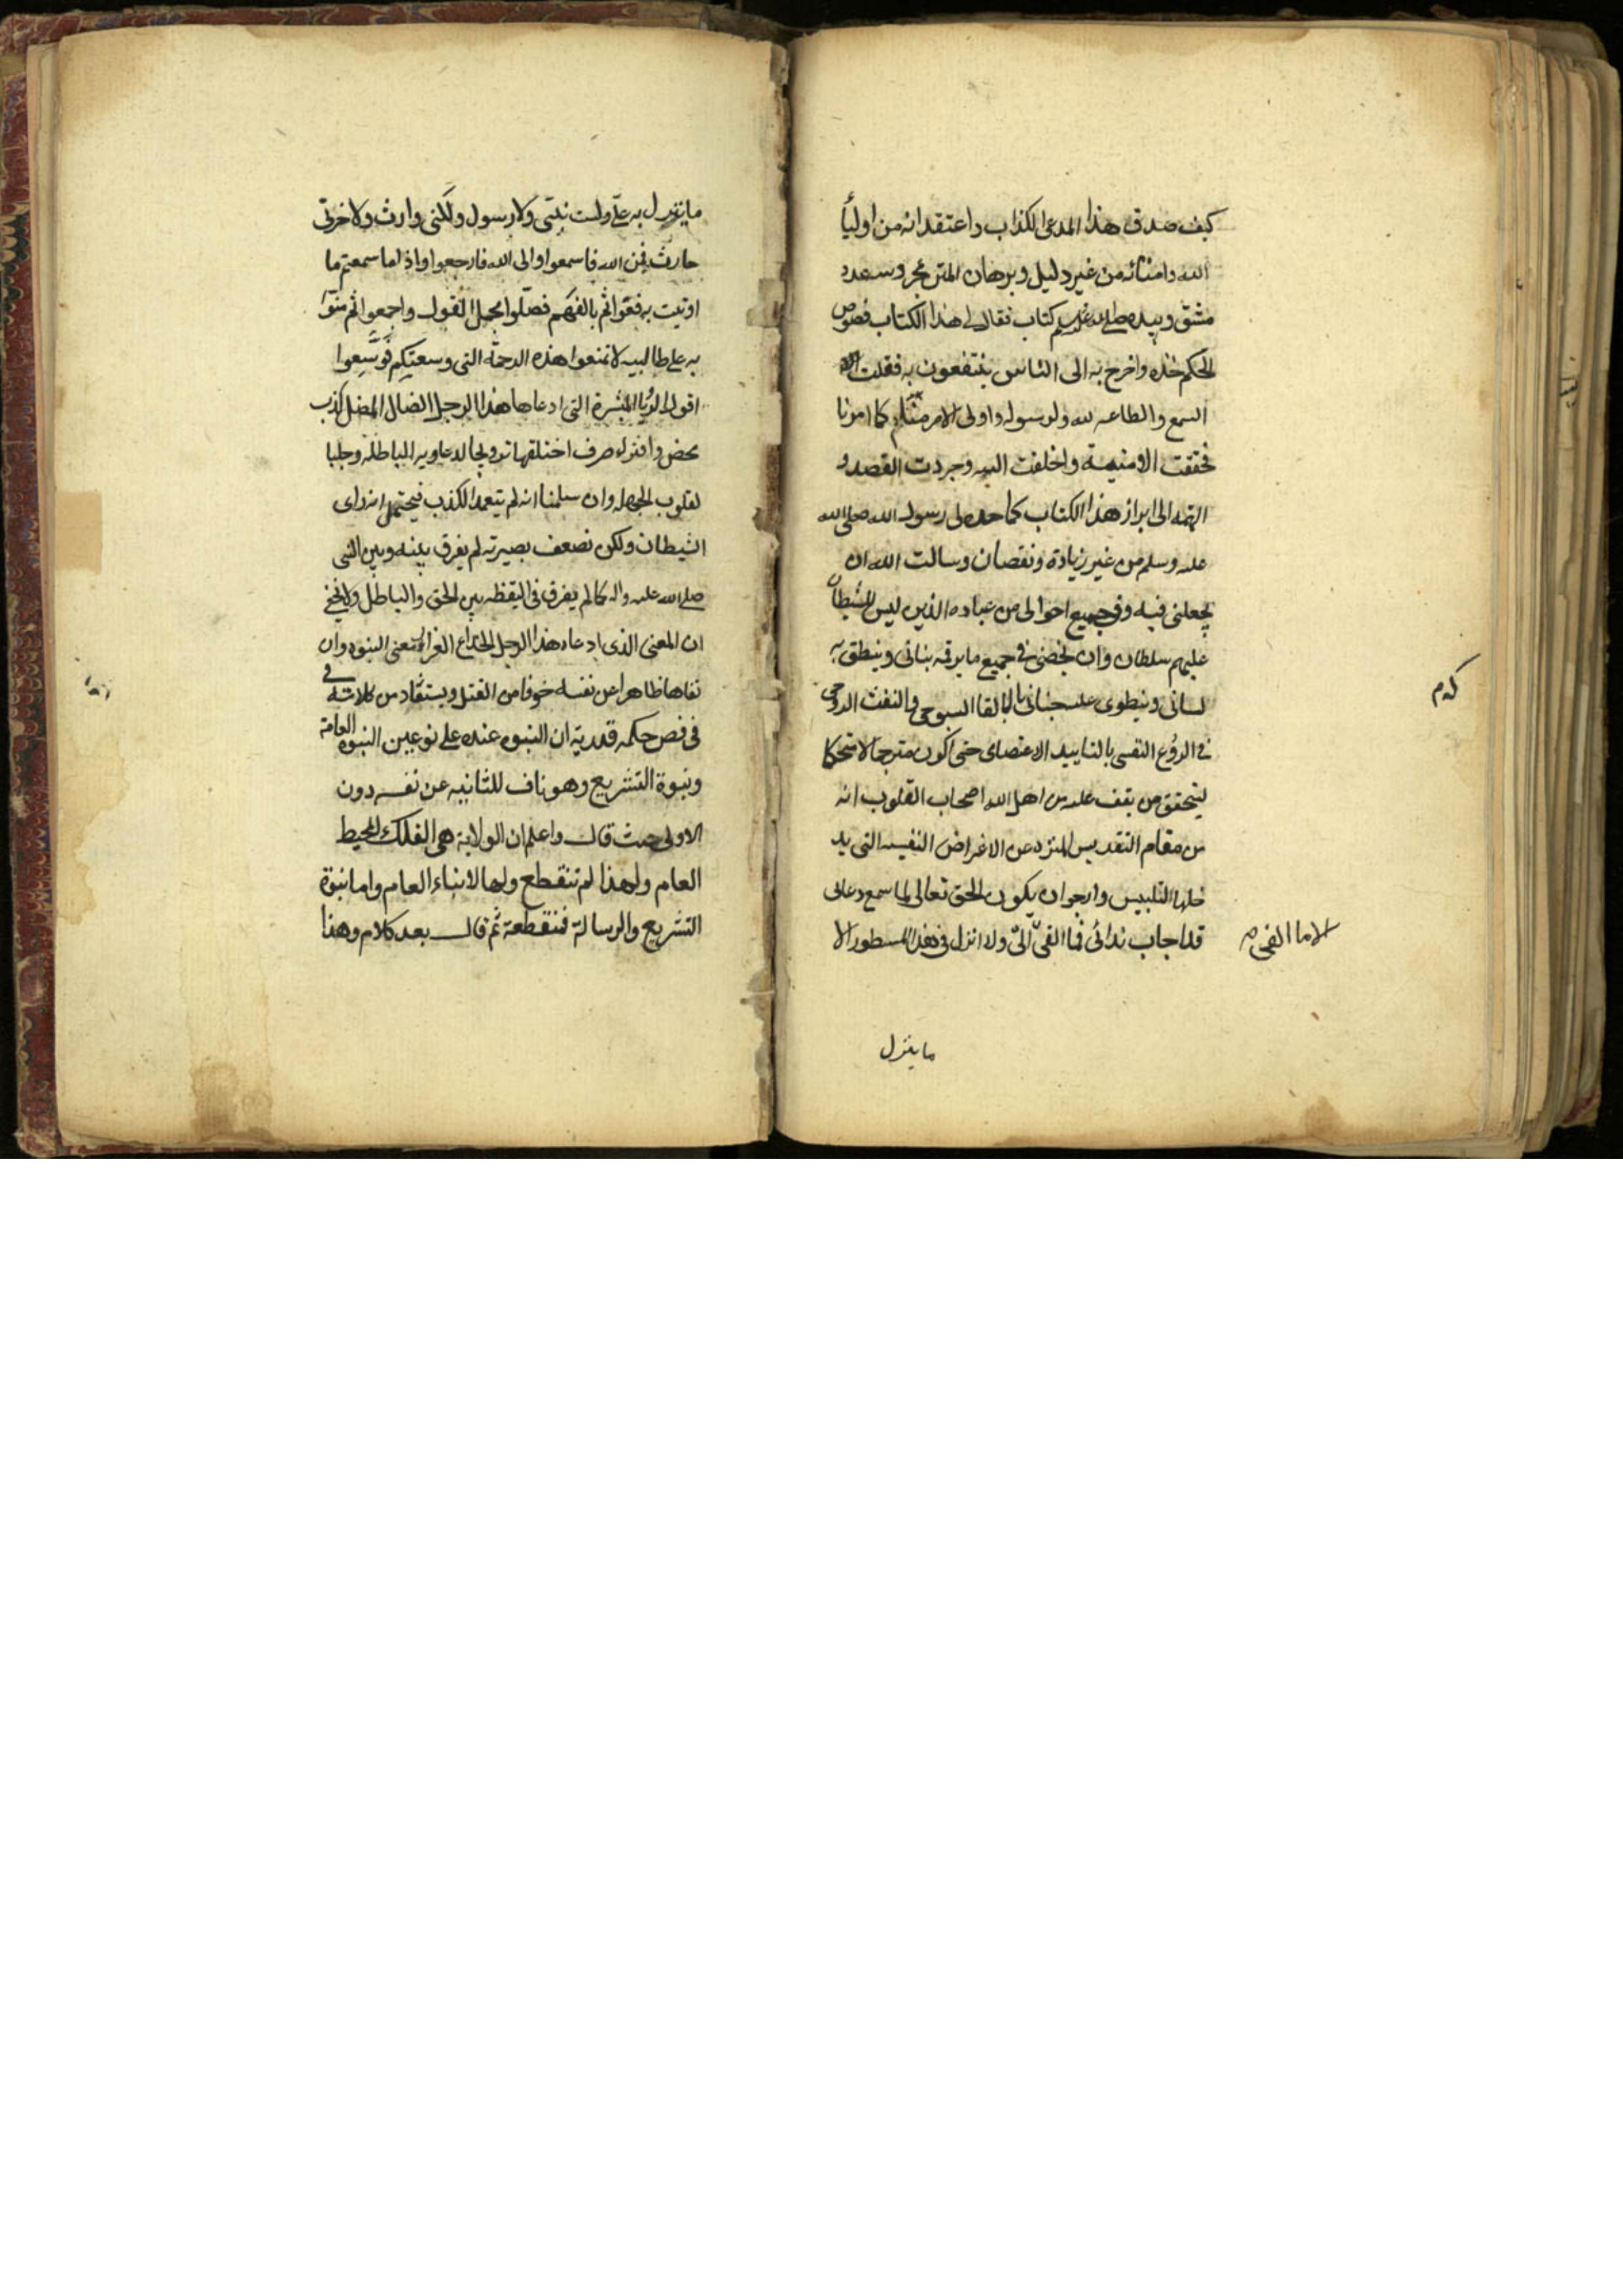 كيف صدق هذا المدعى الكذاب واعتقد انه من اوليأ
الله وامنائه من غير دليل وبرهان
مشق وبيده صلى الله عليه وسلم كتاب فقال لى هذا الكتاب فصوص
الحكم خذه واخرج به الى الناس ينتفعون به فقلت
السمع والطاعه لله ولرسوله واولى الامر منا كما امرنا
فحققت الامنية واخلفت النيه وجردت القصد و
الهمه الى ابراز هذا الكتاب كما حده لى رسول الله صلى الله
عليه وسلم من غير زيادة ونقصان وسالت الله ان
يجعلنى فيه وفى جميع احوالى من عباده الذين ليس للشيطان
عليهم سلطان وان يخصنى فى جميع ما يرقمه بنانى وينطق به
لسانى وينطوى عليه جنانى بالالقا السبوحى والنفث الروحى
فى الروع النفسى بالتاييد الاعتصامى حتى اكون مترجما لا متحكما
ليتحقق من يقف عليه من اهل الله اصحاب القلوب انه
من مقام التقديس المنزه عن الاغراض النفسيه التى يد
خلها التلبيس وارجو ان يكون الحق تعالى لما سمع دعائى
قد اجاب ندائى فما القى الىّ ولا انزل فى هذا المسطور الا
الا ما القى
ما ينزل
ما ينزل به علىّ ولست بنبى ولا رسول ولكنى وارث ولاخرتى
حارث فمن الله فاسمعوا والى الله فارجعوا واذا ما سمعتم ما
اوتيت به فعوا ثم بالفهم فصلوا مجمل القول واجمعوا ثم منوا
به على طالبيه لا تمنعوا هذه الرحمة التى وسعتكم فوسعوا
اقول الرؤيا المبشرة التى ادعاها هذا الرجل الضال المضل كذب
محض وافتراء صرف اختلقها ترويجا لدعاويه الباطلة وجلبا
لقلوب الجهله وان سلمنا انه لم يتعمد الكذب فيحتمل انه راى
الشيطان ولكن لضعف بصيرته لم يفرق بينه وبين النبى
صلى الله عليه واله كما لم يفرق فى اليقظه بين الحق والباطل ولا يخفى
ان المعنى الذى ادعاه هذا الرجل الخداع الغرار معنى النبوه وان
نفاها ظاهرا عن نفسه خوفا من القتل ويستفاد من كلامه فى
فى فص حكمه قدرية ان النبوه عنده على نوعين النبوه العامة
ونبوة التشريع وهو ناف للثانيه عن نفسه دون
الاولى حيث قال واعلم ان الولاية هى الفلك المحيط
العام ولهذا لم تنقطع ولها الانباء العام واما نبوة
التشريع والرسالة فمنقطعة ثم قال بعد كلام وهذا